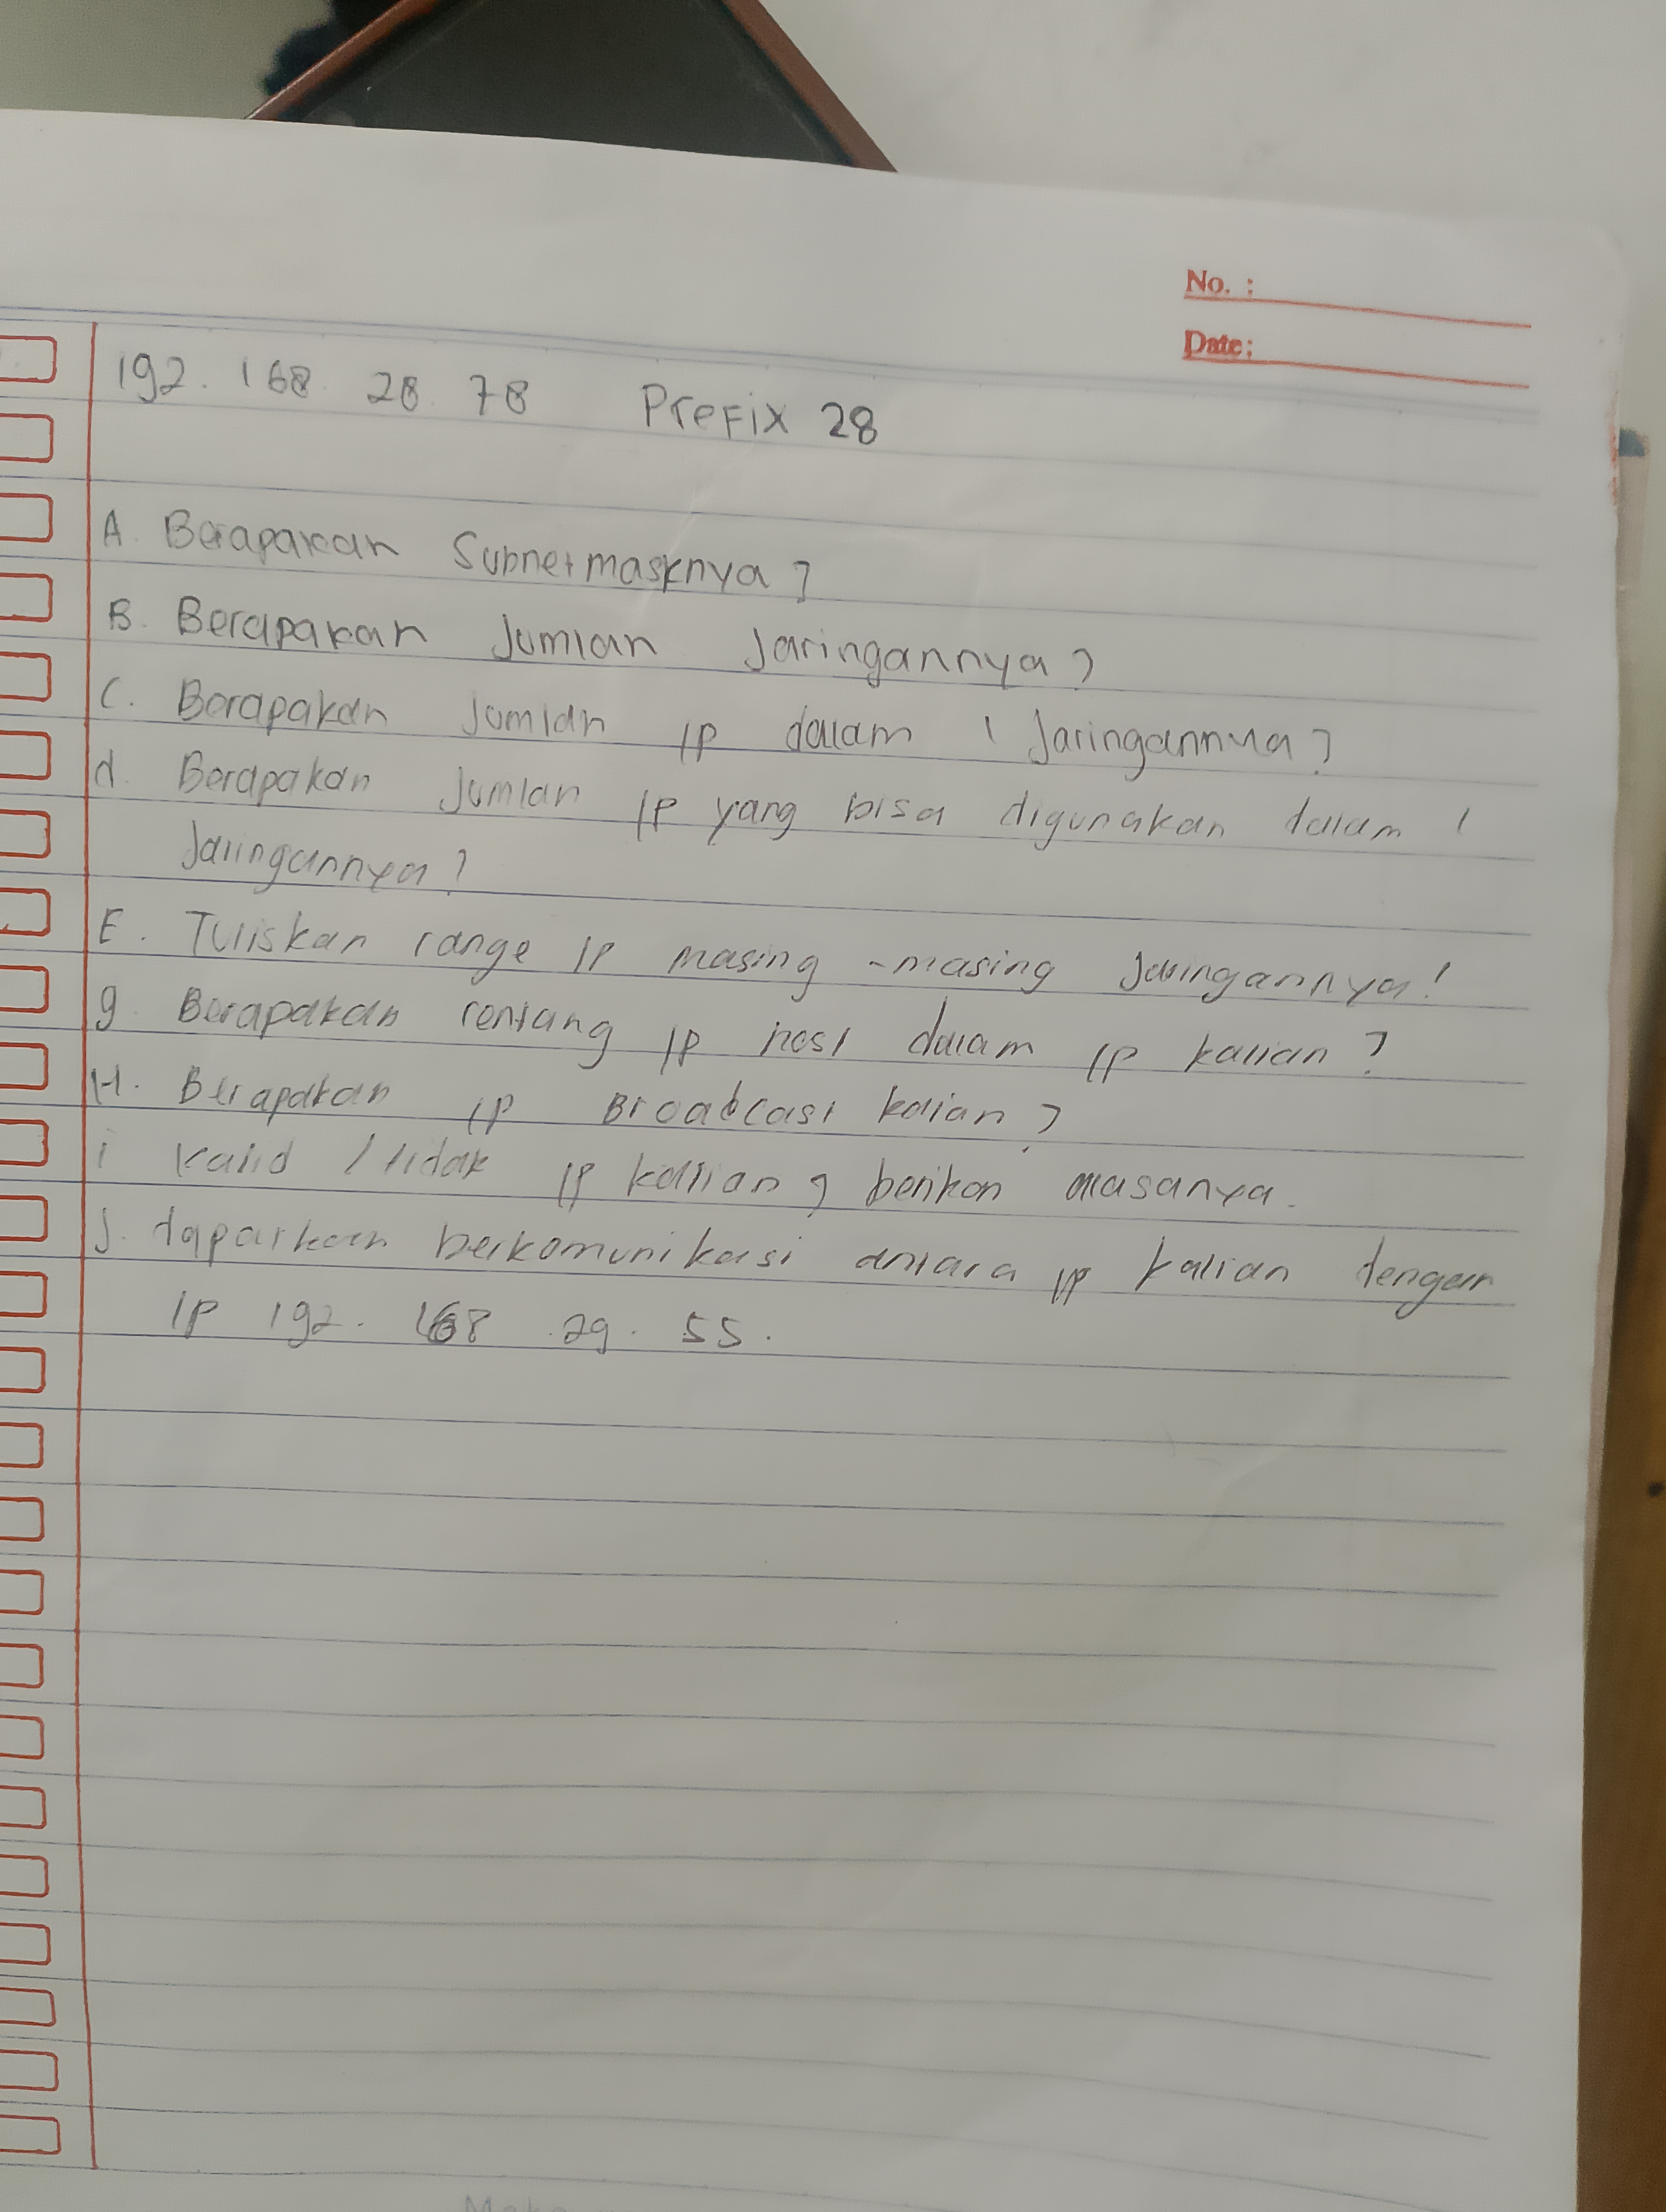 No. :
Date:
192. 168. 28. 78 Prefix 28
A. Berapakah Subnetmasknya?
B. Berapakah Jumlah Jaringannya?
C. Berapakah Jumlah IP dalam 1 Jaringannya?
d. Berapakah Jumlah IP yang bisa digunakan dalam 1
Jaringannya?
E. Tuliskan range IP masing-masing Jaringannya!
g. Berapakah rentang IP host dalam IP kalian?
H. Berapakah IP Broadcast kalian?
i Valid / tidak IP kalian, berikan alasanya.
J. dapatkah berkomunikasi antara IP kalian dengan
IP 192. 168. 29. 55.